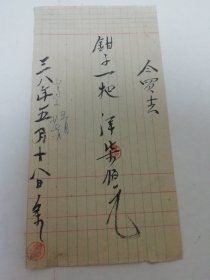 今買去
鉗子一把 洋柒佰元
三八年五月十八日